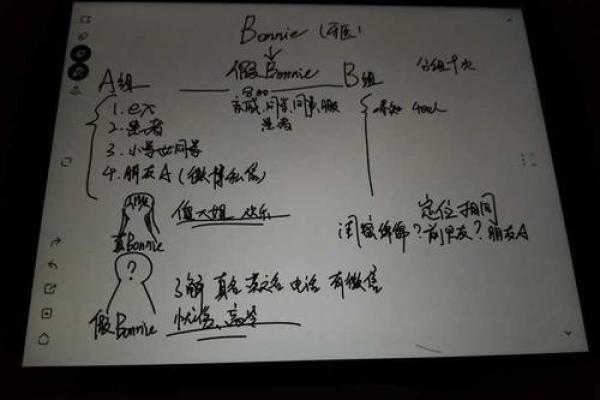 Bonnie (牙医)
假Bonnie
A组
B组
分组十次
800
亲戚、同学、同事、朋友
患者
1. ex
2. 患者
3. 小学女同学
4. 朋友A (微博私信)
真Bonnie
傻大姐 欢乐
定位相同
闺蜜绵绵? 前男友? 朋友A
?
假Bonnie
了解 真名 英文名 电话 有微信
忧伤、高冷